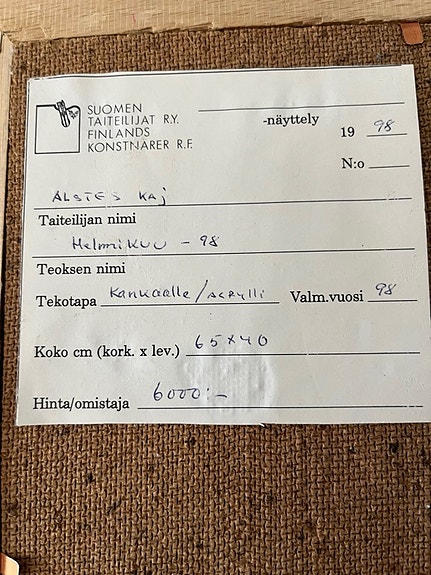 SUOMEN
TAITEILIJAT R.Y.
FINLANDS
KONSTNÄRER R.F.
-näyttely
19 98
N:o
ALSTES KAJ
Taiteilijan nimi
Helmikuu - 98
Teoksen nimi
Tekotapa Kankaalle/acrylli Valm.vuosi 98
Koko cm (kork. x lev.) 65x40
Hinta/omistaja 6000:-